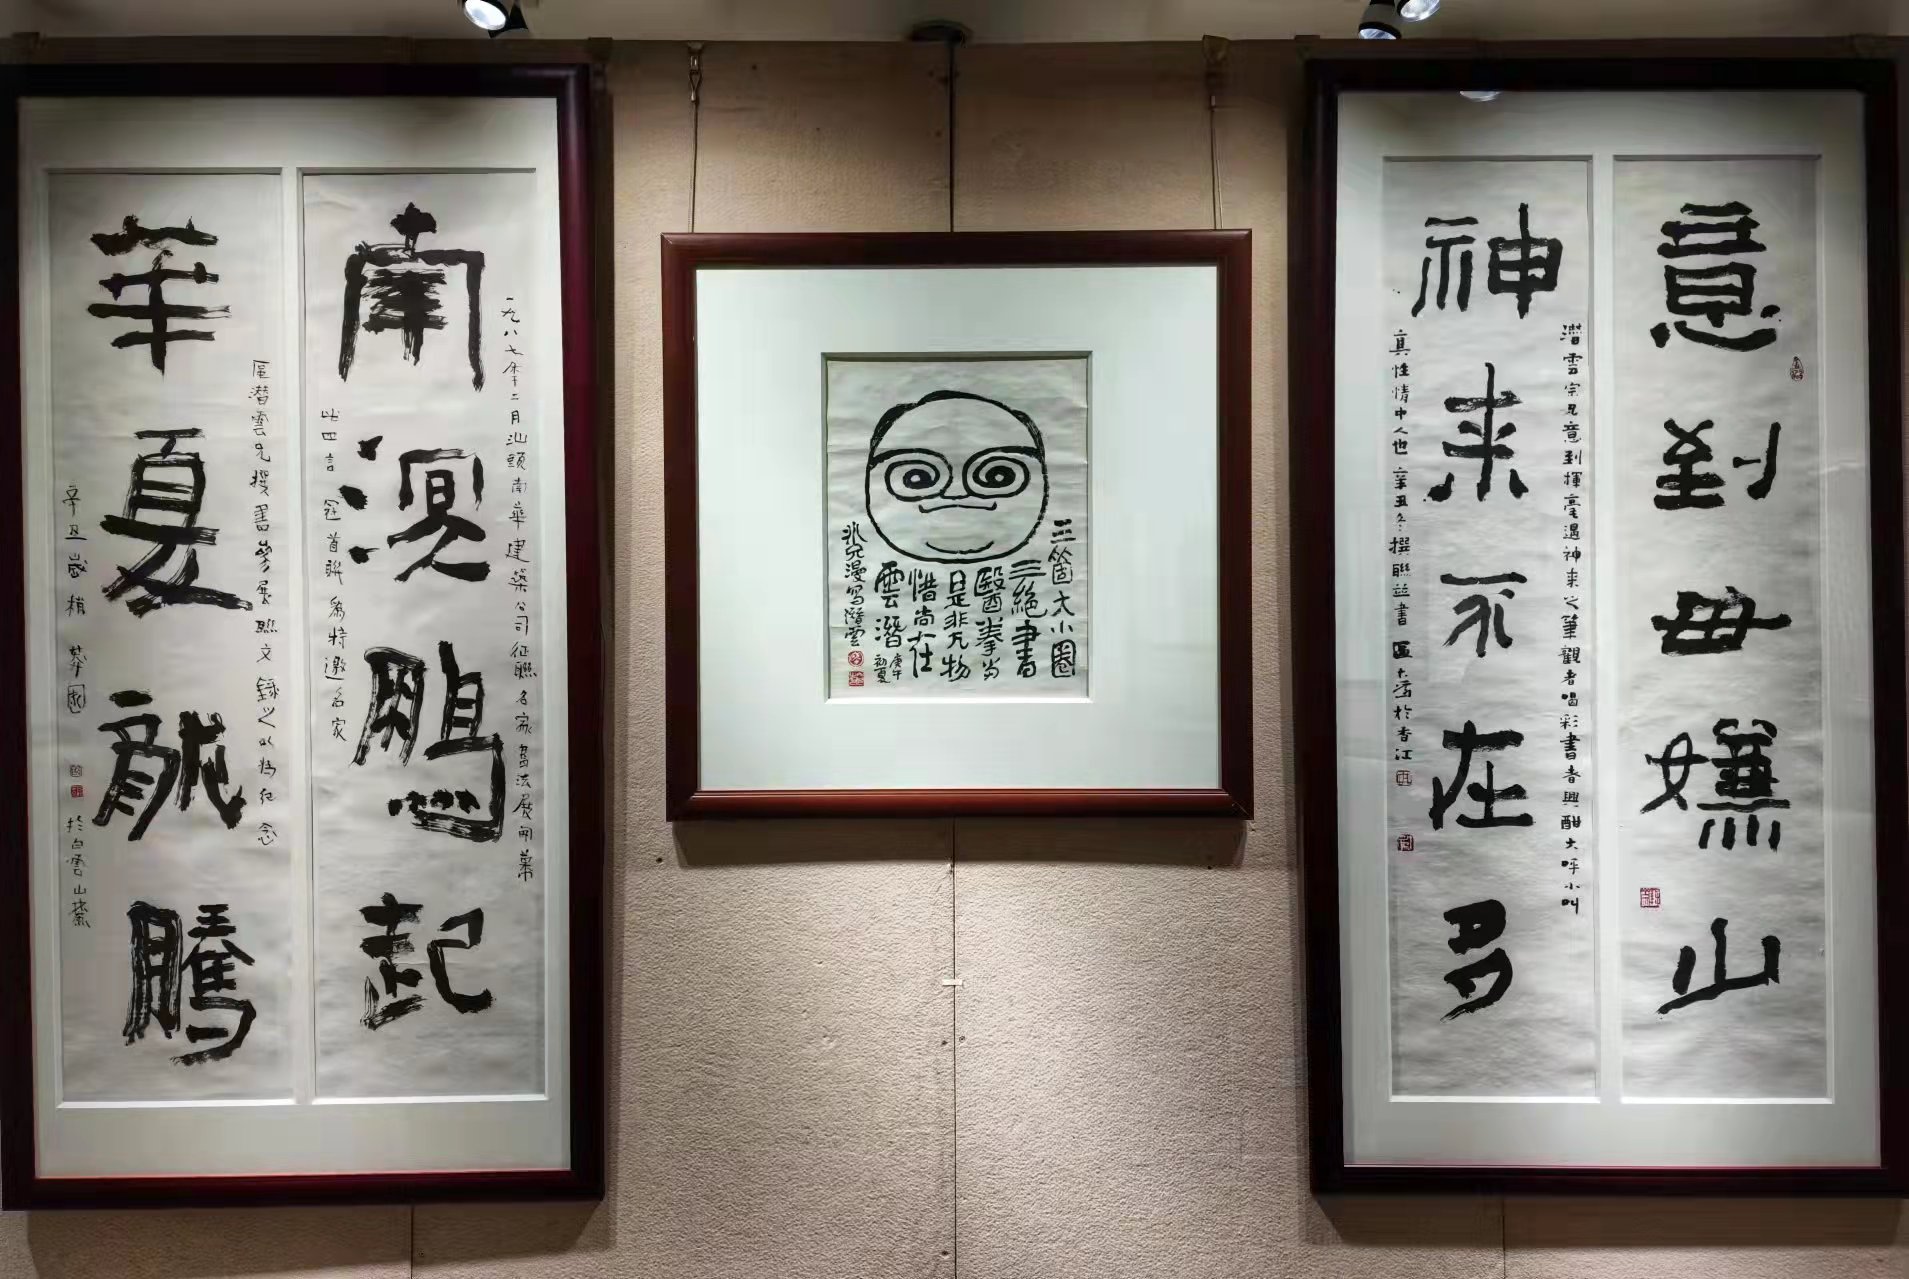 意到毋嫌山
神来不在多
潜雲宗兄意到揮毫遇神来之筆觀者喝彩書者興酣大呼小叫
真性情中人也辛丑冬撰聯並書區大爲於香江
三箇大小圈
三絕書
醫拳当
是非凡物
惜尚在
雲潛
庚午
初夏
兆凡漫写潛雲
南溟鵬起
一九八七年二月汕頭南華建築公司征聯名家書法展開幕
此四言冠首聯為特邀名家
華夏龍騰
區潜雲先撰書參展聯文錄之以为纪念
辛丑歲梢
於白雲山麓